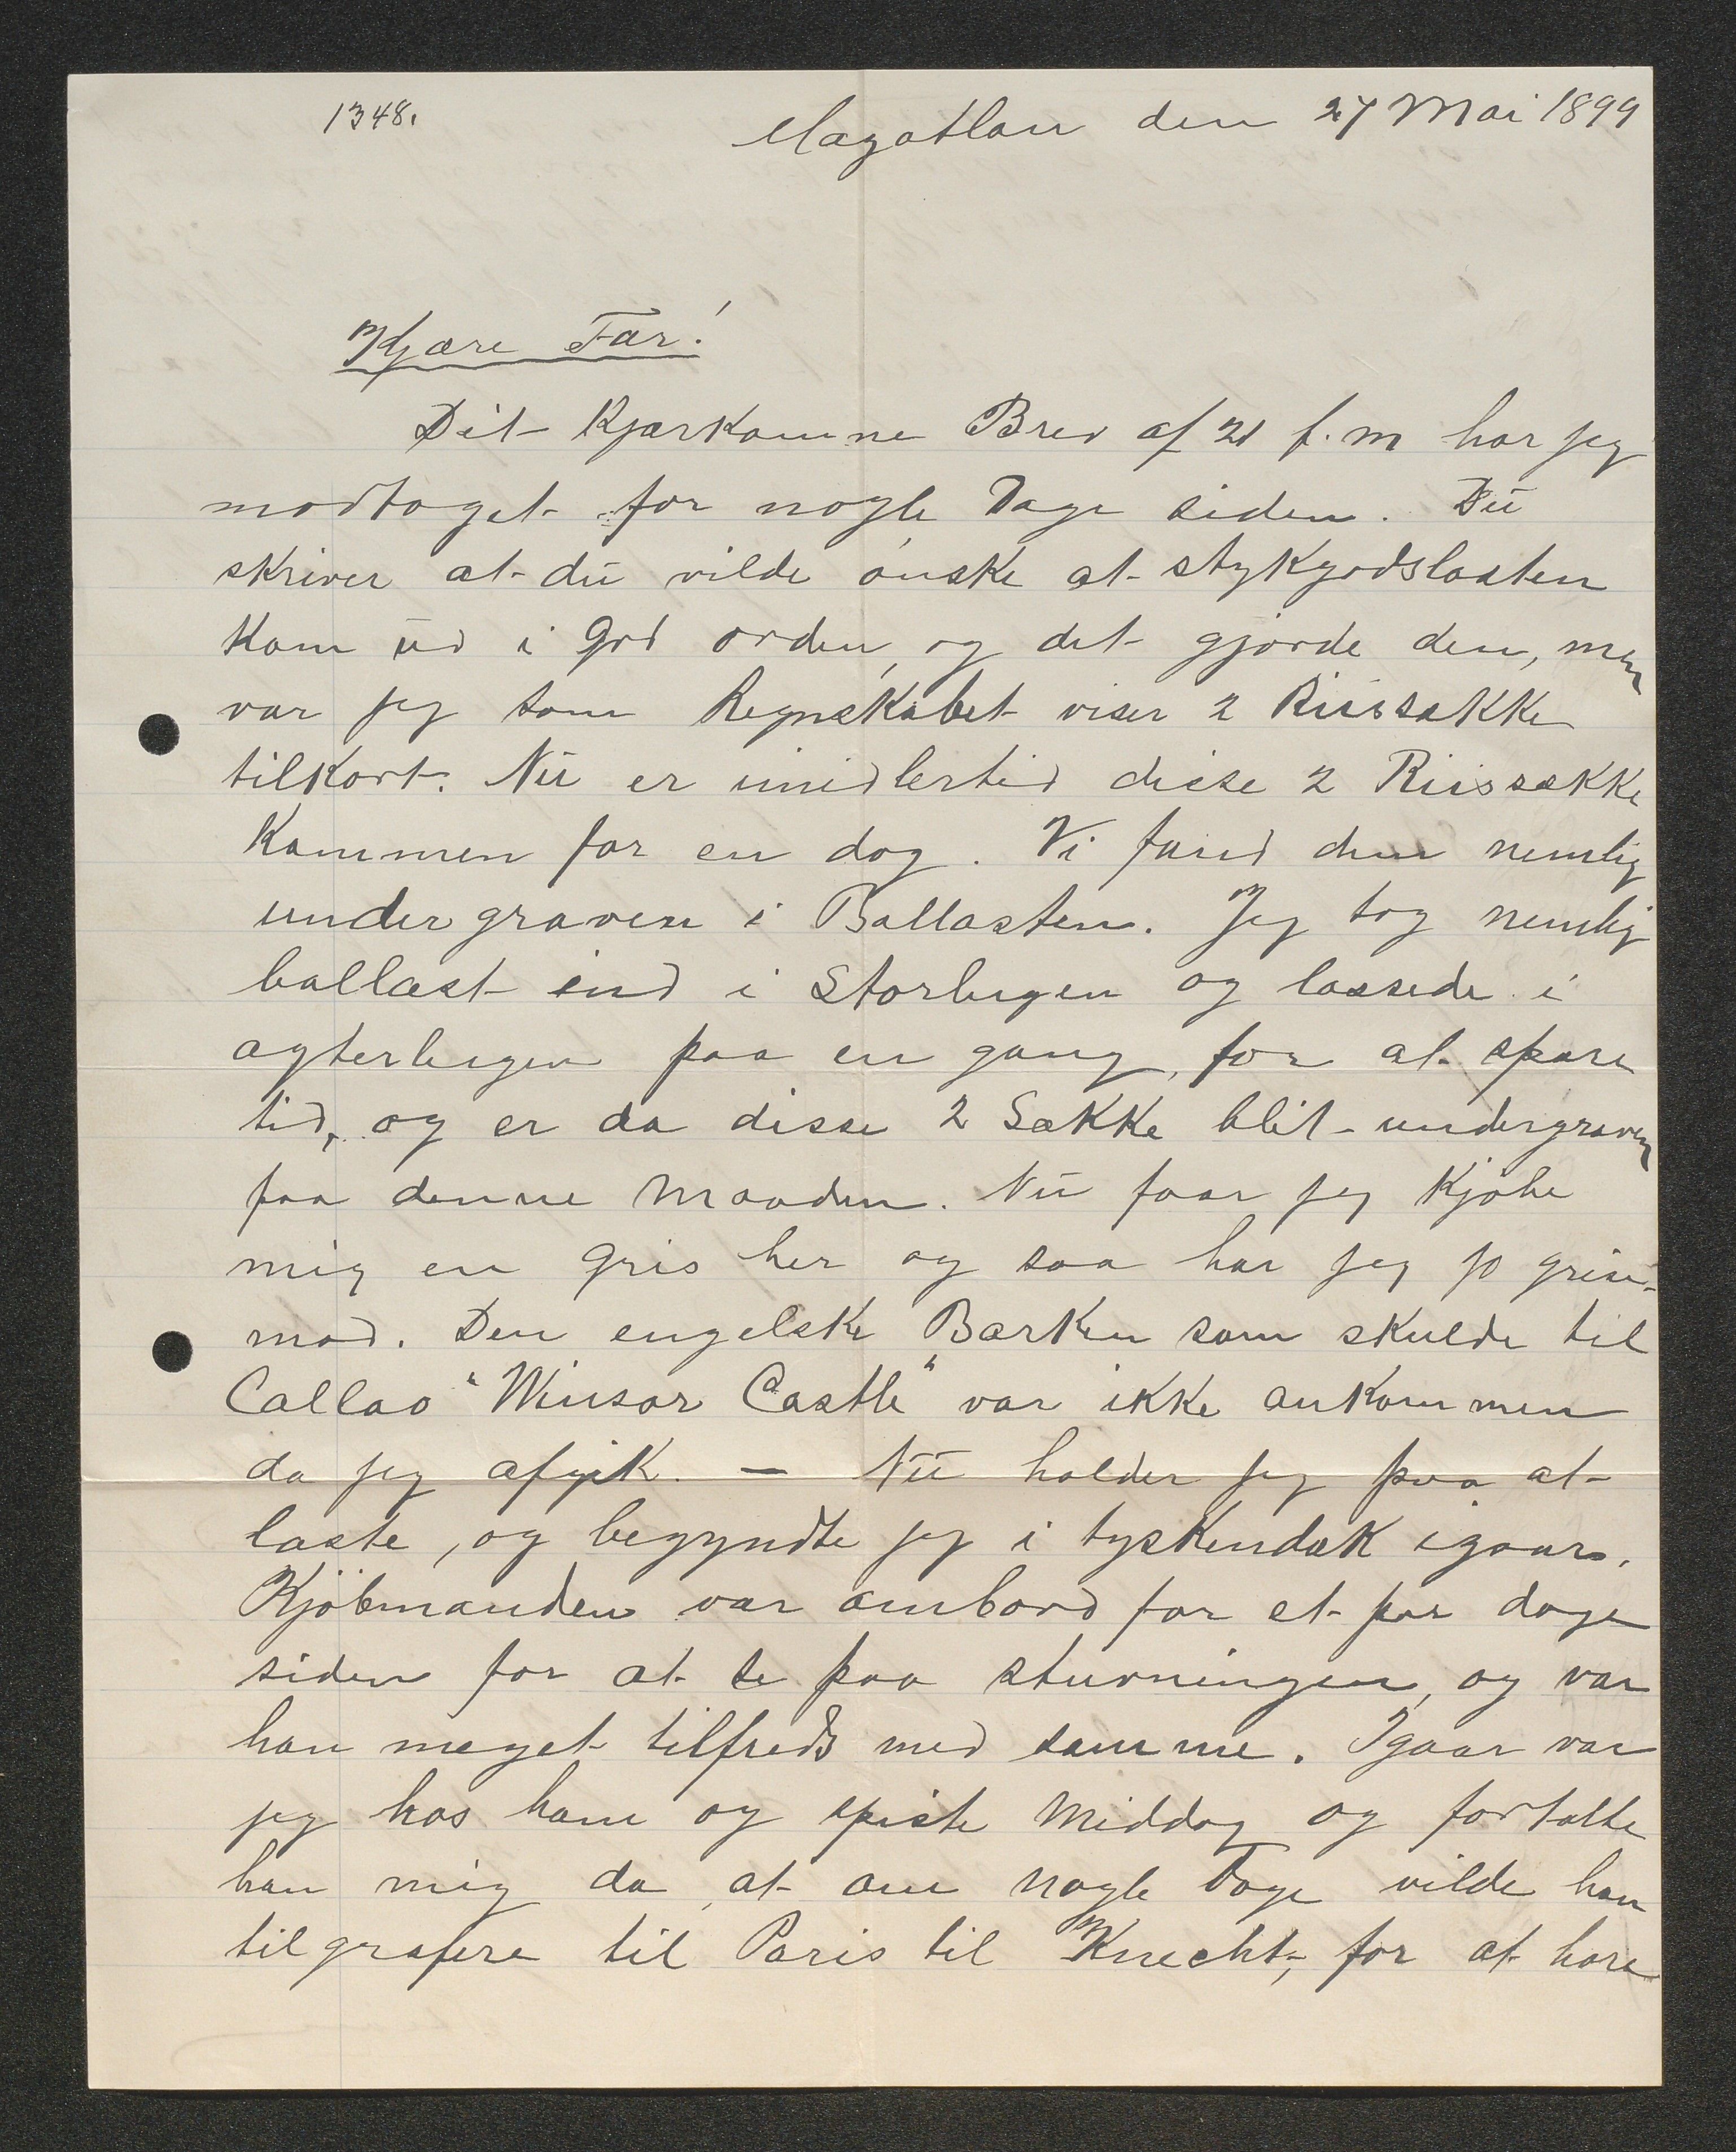 1348.
Mazatlan den 27 Mai 1899
Kjære Far!
Dit Kjærkomne Brev af 21 f.m har jeg
modtaget for nogle Dage siden. Du
skriver at du vilde ønske at stykgodslasten
kom ud i God orden, og det gjorde den, men
var jeg som Regnskabet viser 2 Riissække
tilkort. Nu er imidlertid disse 2 Riissække
kommen for en dag. Vi fand dem nemlig
undergraven i Ballasten. Jeg tog nemlig
ballast ind i Storlugen og lossede i
agterlugen paa en gang, for at spare
tid, og er da disse 2 Sække blit undergraven
paa denne Maaden. Nu faar jeg kjøbe
mig en Gris her og saa har jeg jo grise-
mad. Den engelske Barken som skulde til
Callao "Winsor Castle" var ikke ankommen
da jeg afgik. — Nu holder jeg paa at
laste, og begyndte jeg i tyskendæk igaar.
Kjøbmanden var ombord for et par dage
siden for at se paa stuvningen, og var
han meget tilfreds med samme. Igaar var
jeg hos ham og spiste Middag og fortalte
han mig da, at om nogle Dage vilde han
tilgrafere til Paris til Knecht, for at høre